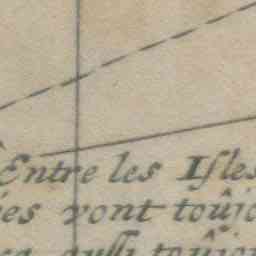 Entre les Isles
es vont toûjo
aussi toûjou